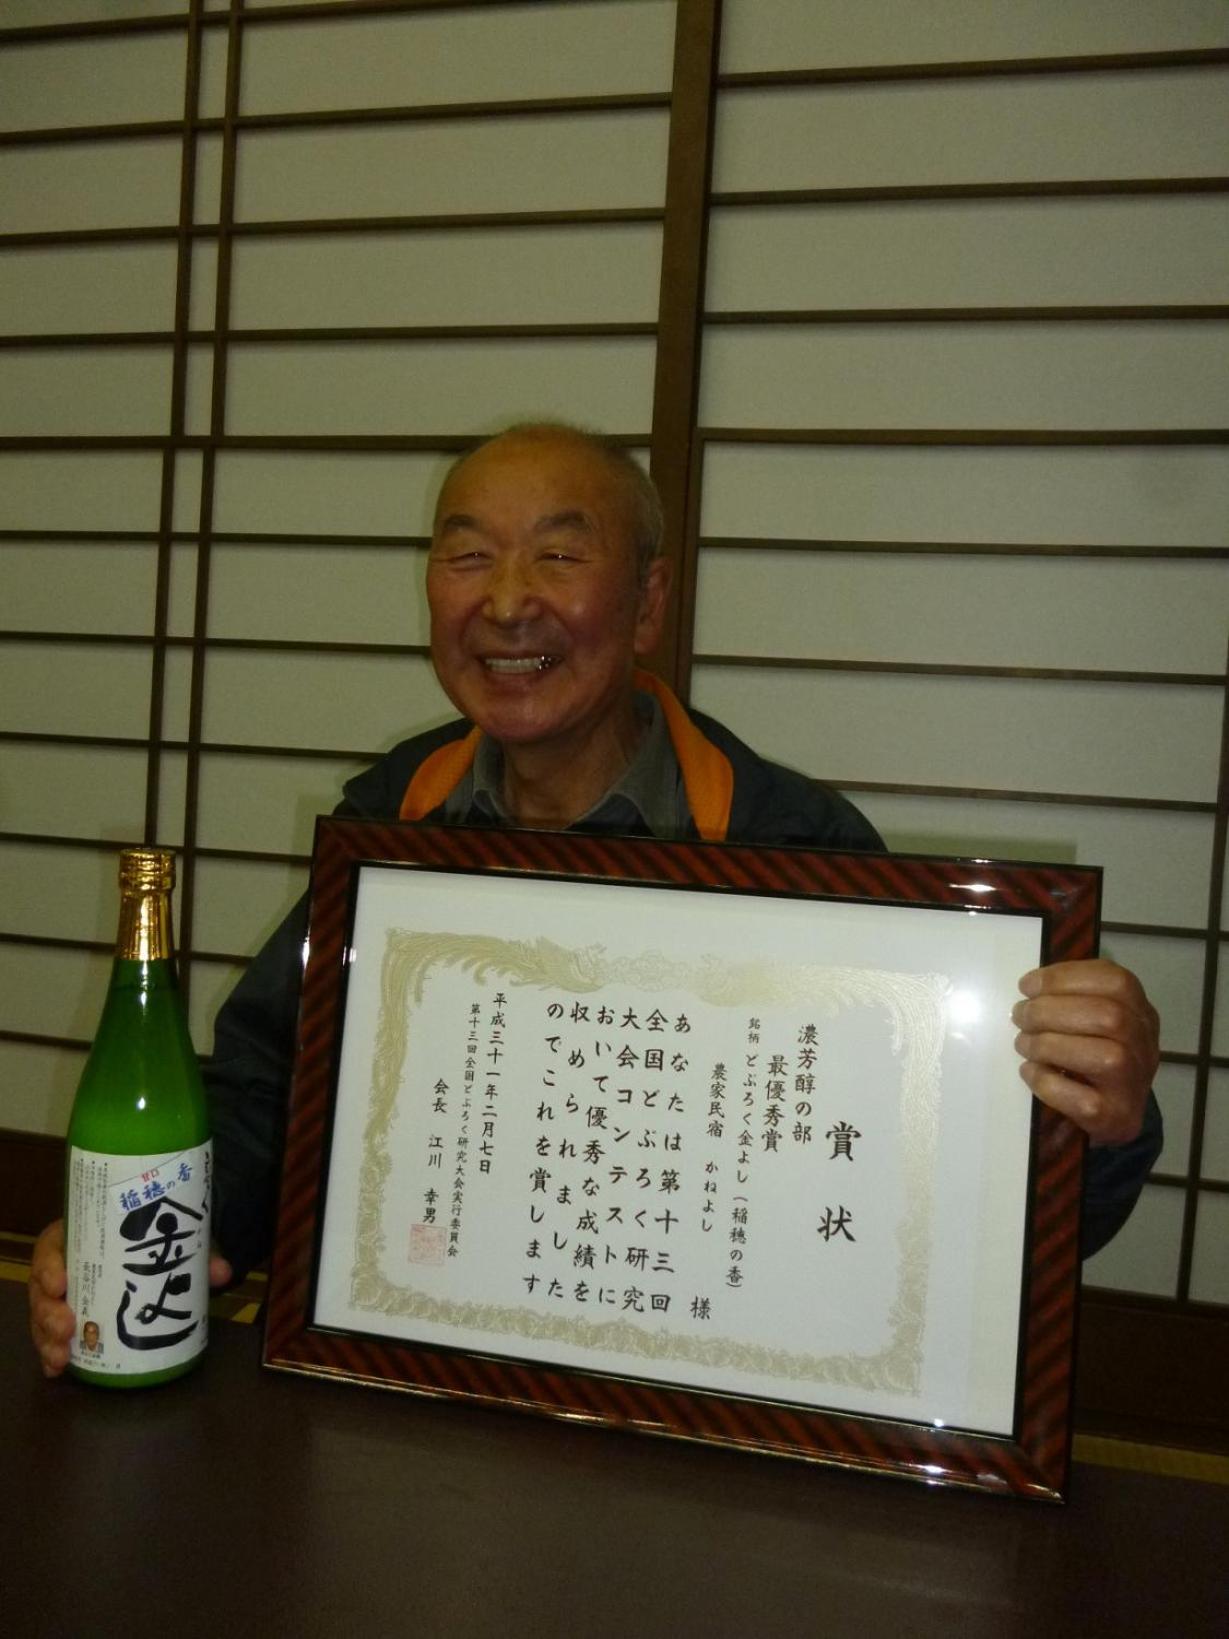 賞状
濃芳醇の部
最優秀賞
銘柄 どぶろく金よし(稲穂の香)
農家民宿 かねよし 様
あなたは第十三回
全国どぶろく研究
大会コンテストに
おいて優秀な成績を
収められました
のでこれを賞します
平成三十一年二月七日
第十三回全国どぶろく研究大会実行委員会
会長 江川 幸男
甘口
稲穂の香
金よし
長谷川金義